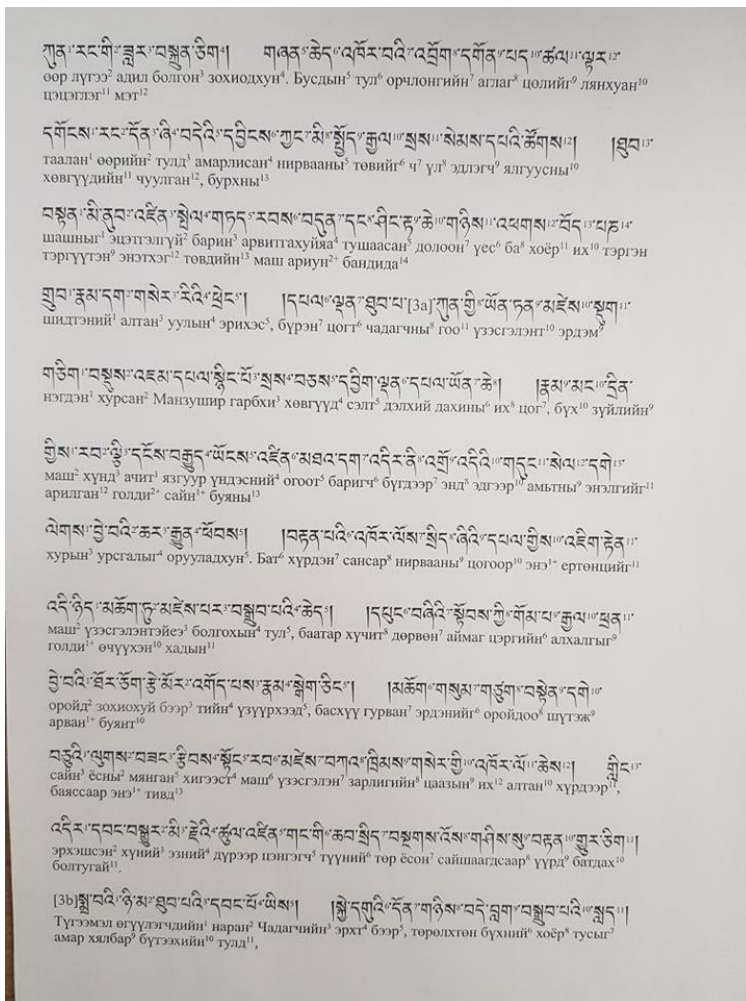 ཀུན་¹་རང་གི་²་ཟླར་³་བསྐྲུན་ཅིག⁴། གཞན་⁵་ཆེད་⁶་འཁོར་བའི་⁷་འབྲོག་⁸་དགོན་⁹་པད་¹⁰་ཚལ་¹¹་ལྟར་¹²་
өөр лүгээ² адил болгон³ зохиодхун⁴. Бусдын⁵ тул⁶ орчлонгийн⁷ аглаг⁸ цөлийг⁹ лянхуан¹⁰
цэцэглэг¹¹ мэт¹²
དགོངས་¹་རང་²་དོན་³་ཞི་⁴་བདེའི་⁵་དབྱིངས་⁶་ཀྱང་⁷་མི་⁸་སྤྱོད་⁹་རྒྱལ་¹⁰་སྲས་¹¹་སེམས་དཔའི་ཚོགས་¹²། །ཐུབ་¹³་
таалан¹ өөрийн² тулд³ амарлисан⁴ нирвааны⁵ төвийг⁶ ч⁷ үл⁸ эдлэгч⁹ ялгуусны¹⁰
хөвгүүдийн¹¹ чуулган¹², бурхны¹³
བསྟན་¹་མི་ནུབ་²་འཛིན་³་སྤེལ་⁴་གཏད་⁵་རབས་⁶་བདུན་⁷་དང་⁸་ཤིང་རྟ་⁹་ཆེ་¹⁰་གཉིས་¹¹་འཕགས་¹²་བོད་¹³་པཎ་¹⁴་
шашныг¹ эцэтгэлгүй² барин³ арвитгахуйяа⁴ тушаасан⁵ долоон⁷ үес⁶ ба⁸ хоёр¹¹ их¹⁰ тэргэн
тэргүүтэн⁹ энэтхэг¹² төвдийн¹³ маш ариун²⁺ бандида¹⁴
གྲུབ་¹་རྣམ་དག་²་གསེར་³་རིའི་⁴་ཕྲེང་⁵། །དཔལ་⁶་ལྡན་⁷་ཐུབ་པ་[3a]་ཀུན་གྱི་⁸་ཡོན་ཏན་⁹་མཛེས་¹⁰་སྡུག་¹¹་
шидтэний¹ алтан³ уулын⁴ эрихэс⁵, бүрэн⁷ цогт⁶ чадагчны⁸ гоо¹¹ үзэсгэлэнт¹⁰ эрдэм⁹
གཅིག་¹་བསྡུས་²་འཇམ་དཔལ་སྙིང་པོ་³་སྲས་⁴་བཅས་⁵་དབྱིག་ལྡན་⁶་དཔལ་ཡོན་⁷་ཆེ⁸། །རྣམ་⁹་མང་¹⁰་དྲིན་
нэгдэн¹ хурсан² Манзушир гарбхи³ хөвгүүд⁴ сэлт⁵ дэлхий дахины⁶ их⁸ цог⁷, бүх¹⁰ зүйлийн⁹
གྱིས་¹་རབ་²་ལྕི་³་དངོས་བརྒྱུད་⁴་ཡོངས་⁵་འཛིན་⁶་མཐའ་དག་⁷་འདིར་ནི་⁸་འགྲོ་⁹་འདིའི་¹⁰་གདུང་¹¹་སེལ་¹²་དགེ་¹³་
маш² хүнд³ ачит¹ язгуур үндэсний⁴ огоот⁵ баригч⁶ бүгдээр⁷ энд⁸ эдгээр¹⁰ амьтны⁹ энэлгийг¹¹
арилган¹² голди²⁺ сайн¹⁺ буяны¹³
ལེགས་¹་བྱེ་བའི་²་ཆར་³་རྒྱུན་⁴་ཕོབས⁵། །བརྟན་པའི་⁶་འཁོར་ལོས་⁷་སྲིད་⁸་ཞིའི་⁹་དཔལ་གྱིས་¹⁰་འཇིག་རྟེན་¹¹་
хурын³ урсгалыг⁴ орууладхун⁵. Бат⁶ хүрдэн⁷ сансар⁸ нирвааны⁹ цогоор¹⁰ энэ¹⁺ ертөнцийг¹¹
འདི་ཉིད་¹་མཆོག་ཏུ་²་མཛེས་པར་³་བསྒྲུབ་པའི་⁴་ཆེད⁵། །དཔུང་⁶་བཞིའི་⁷་སྟོབས་ཀྱི་⁸་གོམ་པ་⁹་རྒྱལ་¹⁰་ཕྲན་¹¹་
маш² үзэсгэлэнтэйеэ³ болгохын⁴ тул⁵, баатар хүчит⁸ дөрвөн⁷ аймаг цэргийн⁶ алхалгыг⁹
голди¹⁺ өчүүхэн¹⁰ хадын¹¹
བྱེ་བའི་¹་ཐོར་ཅོག་²་རྩེ་མོར་²་འགོད་པས་³་རྣམ་⁴་སྒེག་ཅིང⁵། །མཆོག་⁶་གསུམ་⁷་གཙུག་⁸་བསྟེན་⁹་དགེ་¹⁰་
оройд² зохиохуй бээр³ тийн⁴ үзүүрхээд⁵, басхүү гурван⁷ эрдэнийг⁶ оройдоо⁸ шүтэж⁹
арван¹⁺ буянт¹⁰
བཅུའི་¹་ལུགས་²་བཟང་³་རྩིབས་⁴་སྟོང་⁵་རབ་⁶་མཛེས་⁷་བཀའ་⁸་ཁྲིམས་⁹་གསེར་གྱི་¹⁰་འཁོར་ལོ་¹¹་ཆེས¹²། གླིང་¹³་
сайн³ ёсны² мянган⁵ хигээст⁴ маш⁶ үзэсгэлэн⁷ зарлигийн⁸ цаазын⁹ их¹² алтан¹⁰ хүрдээр¹¹,
баяссаар энэ¹⁺ тивд¹³
འདིར་¹་དབང་བསྒྱུར་²་མི་³་རྗེའི་⁴་ཚུལ་འཛིན་⁵་གང་གི་⁶་ཆབ་སྲིད་⁷་བསྔགས་འོས་⁸་གཤིས་སུ་⁹་བརྟན་¹⁰་གྱུར་ཅིག¹¹།
эрхэшсэн² хүний³ эзний⁴ дүрээр цэнгэгч⁵ түүний⁶ төр ёсон⁷ сайшаагдсаар⁸ үүрд⁹ батдах¹⁰
болтугай¹¹.
[3b]སྨྲ་བའི་¹་ཉི་མ་²་ཐུབ་པའི་³་དབང་པོ་⁴་ཡིས⁵། །སྐྱེ་དགུའི་⁶་དོན་⁷་གཉིས་⁸་བདེ་བླག་⁹་བསྒྲུབ་པའི་¹⁰་སླད¹¹།
Түгээмэл өгүүлэгчдийн¹ наран² Чадагчийн³ эрхт⁴ бээр⁵, төрөлхтөн бүхний⁶ хоёр⁸ тусыг⁷
амар хялбар⁹ бүтээхийн¹⁰ тулд¹¹,